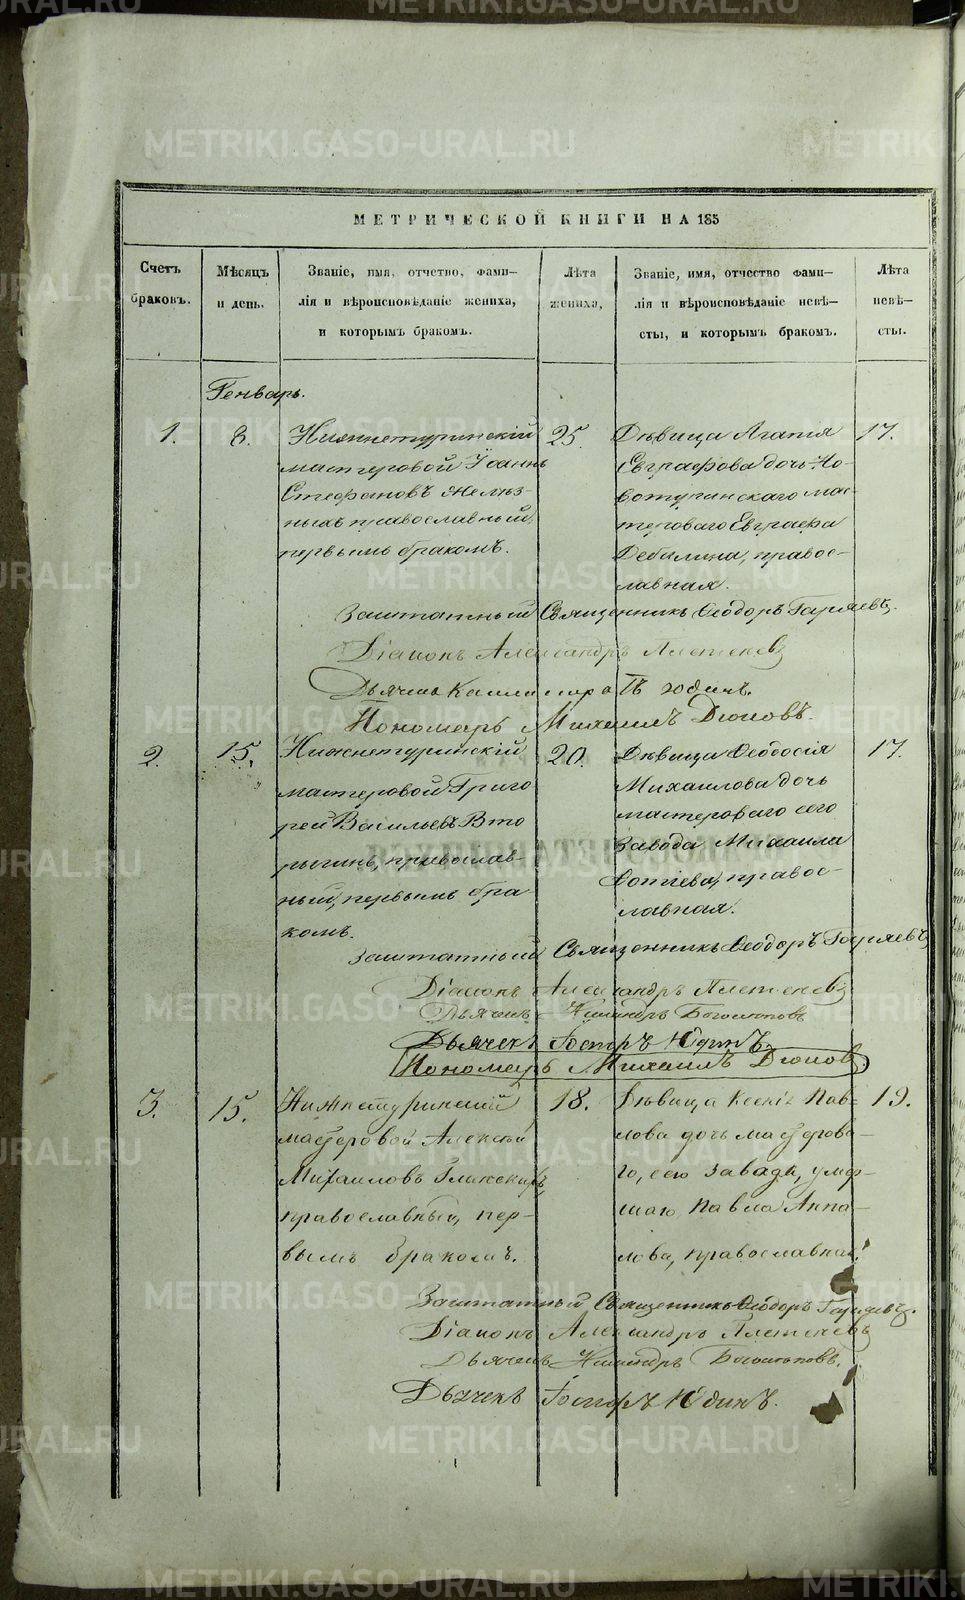 МЕТРИЧЕСКОЙ КНИГИ НА 185
Счетъ браковъ.
Мѣсяцъ и день.
Званіе, имя, отчетво, фами-
лія и вѣроисповѣданіе жениха,
и которымъ бракомъ.
Лѣта жениха,
Званіе, имя, отчество фами-
лія и вѣроисповѣданіе невѣ-
сты, и которымъ бракомъ.
Лѣта невѣ-
сты.
Генварь.
1. 8.
Нижнетуринскій
мастеровой Іоаннъ
Стефановъ Желѣз-
православный,
первымъ бракомъ.
25.
Дѣвица Агапія
Евграфова дочь Но-
вотуринскаго мас-
тероваго Евграфа
Дебилина, правос-
лавная.
17.
Заштатный Священникъ Ѳеодоръ Гаряевъ.
Діаконъ Александръ Плетеневъ
Дьячекъ
Пономарь Михаилъ Дюковъ.
2. 15.
Нижнетуринскій
мастеровой Григо
рей Васильевъ Вто
рыгинъ, православ-
ный, первымъ бра
комъ.
20.
Дѣвица Ѳеодосія
Михаилова дочь
мастероваго сего
завода Михаила
правос-
лавная.
17.
Заштатной Священникъ Ѳеодоръ Гаряевъ
Діаконъ Александръ Плетеневъ
Дьячекъ
Дьячекъ Несторъ Юдинъ.
Пономарь Михаилъ Дюковъ
3. 15.
Нижнетуринскій
мастеровой Алексѣй
Михаиловъ
православный, пер-
вымъ бракомъ.
18.
Дѣвица Ксенія Пав-
лова дочь мастерова-
го, сего завода, умер-
шаго Павла
православная.
19.
Заштатный Священникъ Ѳеодоръ Гаряевъ.
Діаконъ Александръ Плетеневъ
Дьячекъ
Дьячекъ Несторъ Юдинъ.
METRIKI.GASO-URAL.RU